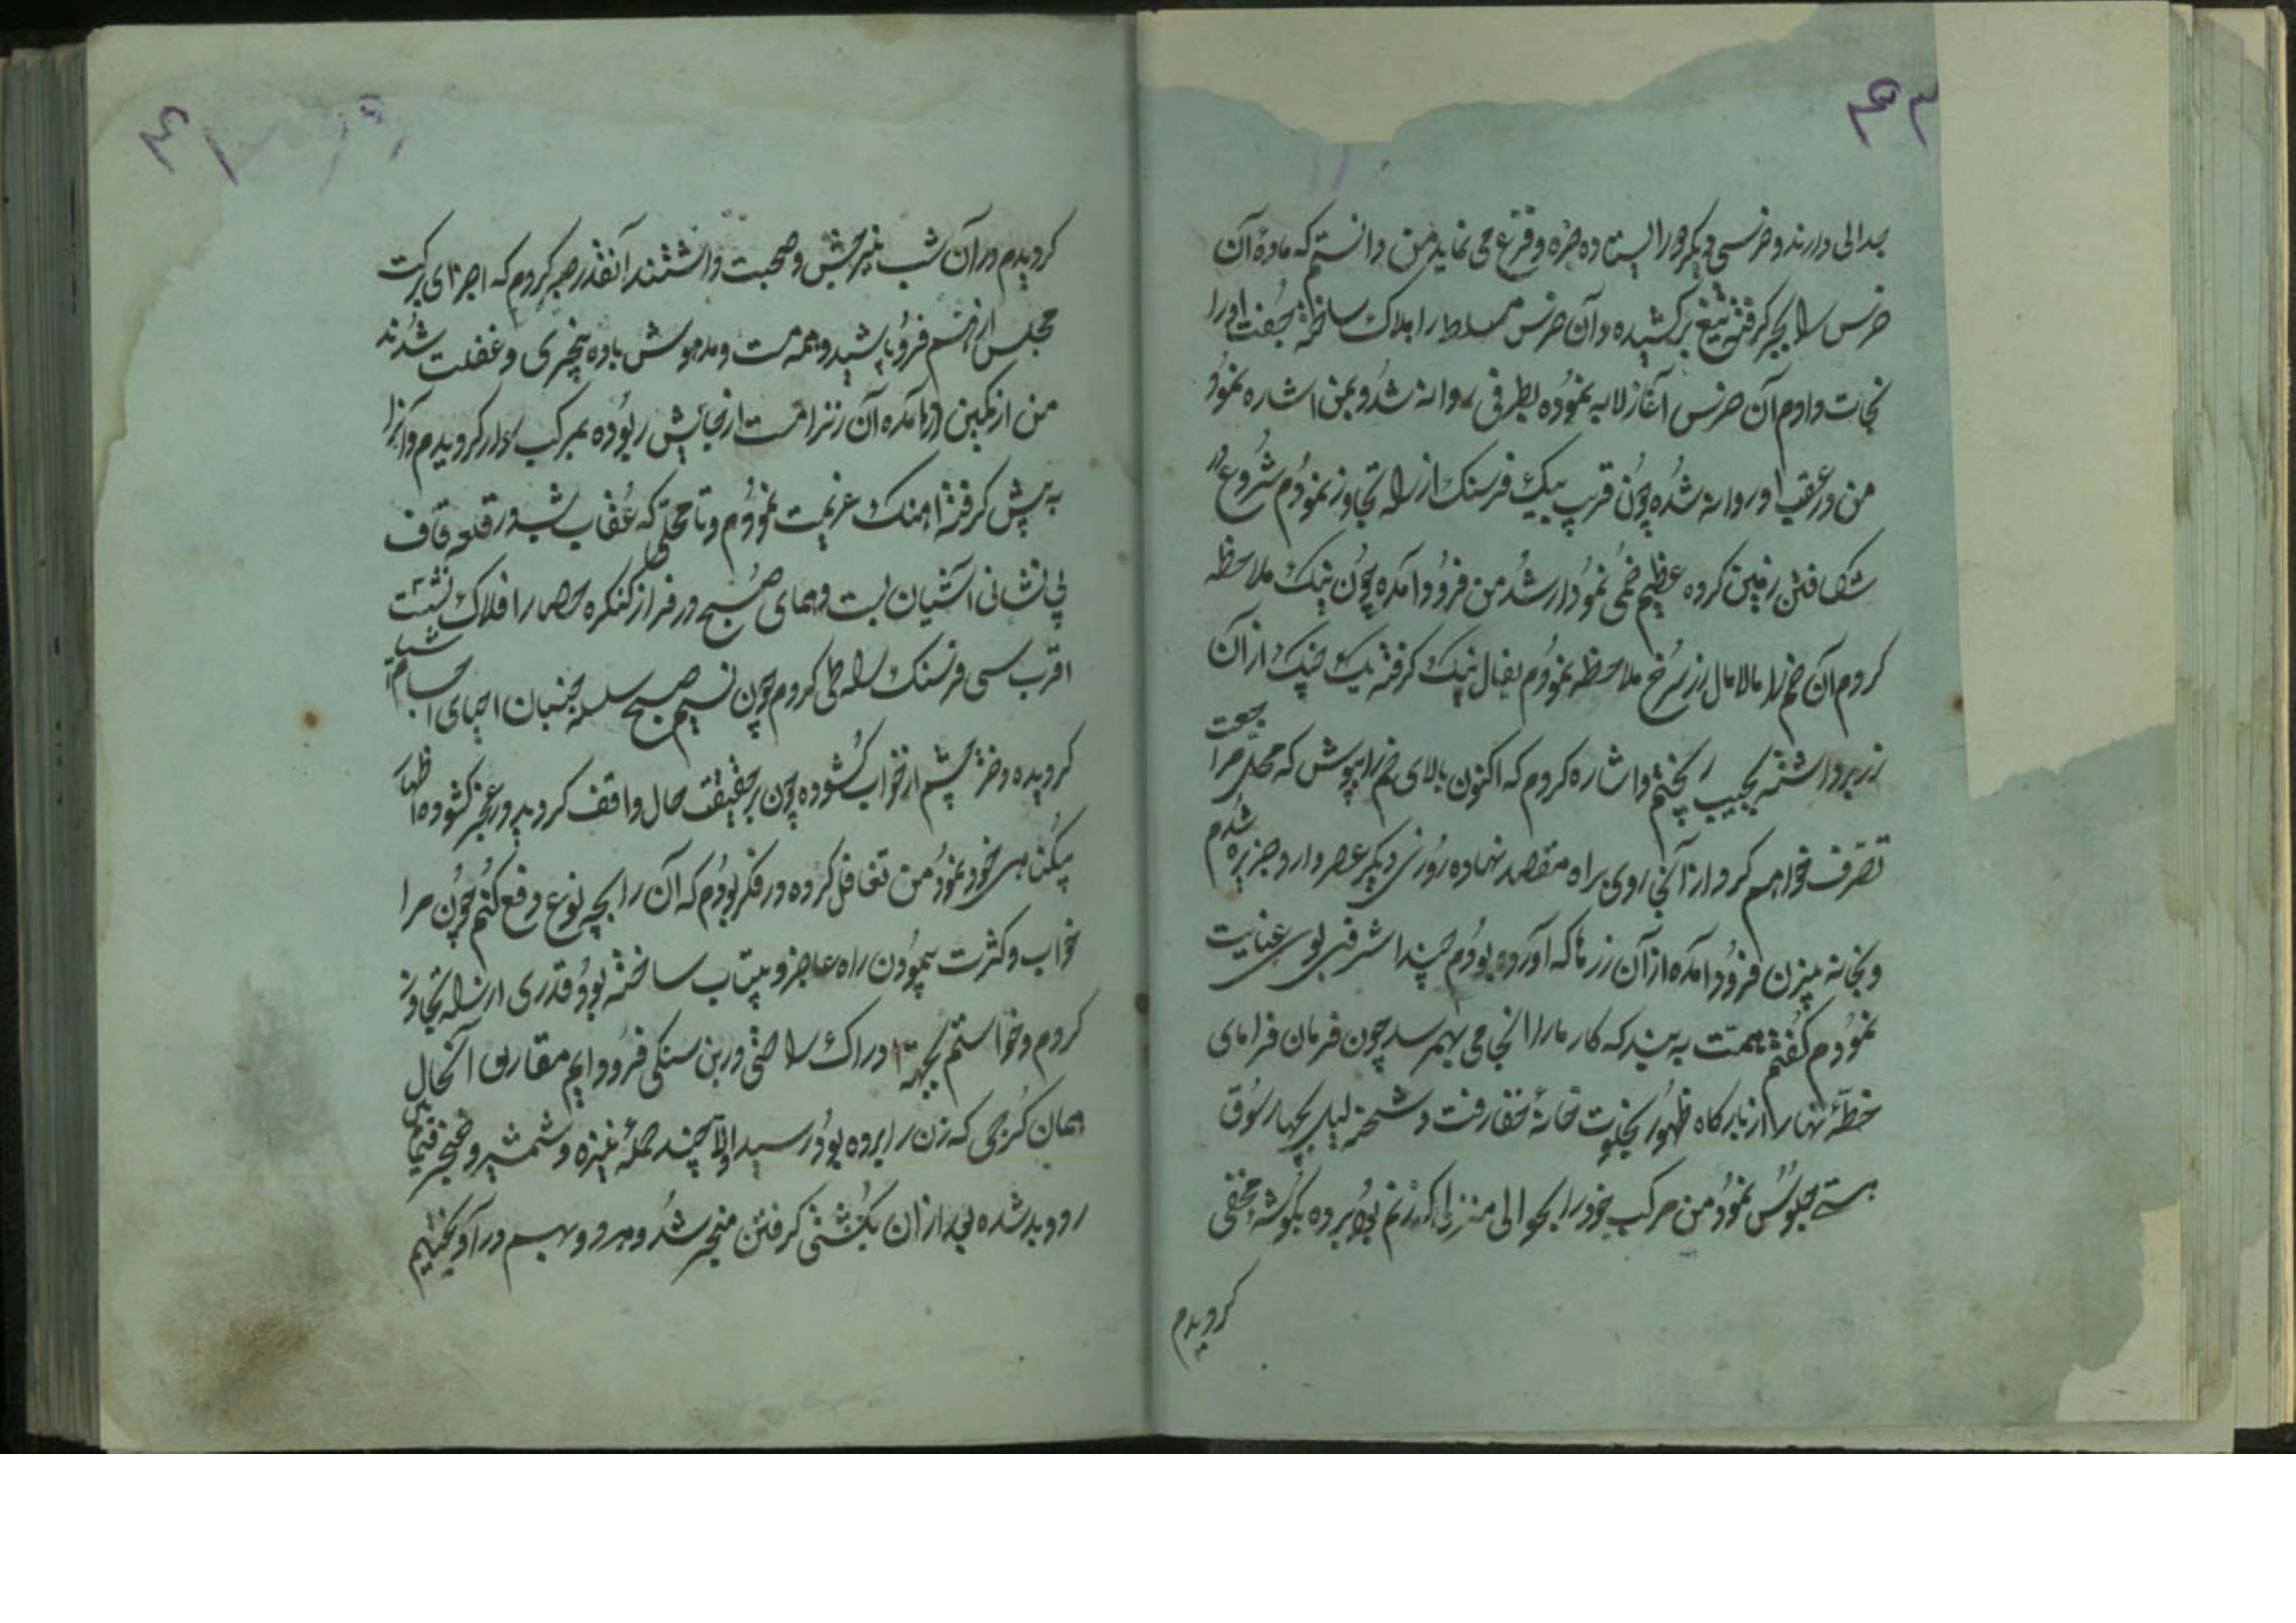 جدالی دارند و خرسی دیگر در ایستاده جزه و فزع می نماید من دانستم که ماده آن
خرس را بجبر گرفته تیغ برکشیده و آن خرس مسلط را هلاک ساخته جفت او را
نجات دادم آن خرس آغاز لابه نموده بطرفی روانه شد و بمن اشاره نمود
من در عقب او روانه شده چون قریب بیک فرسنک از راه تجاوز نمودم شروع در
شکافتن زمین کرده عظیم خمی نمودار شد من فرود آمده چون نیک ملاحظه
کردم آن خم را مالامال زر سرخ ملاحظه نمودم بفال نیک گرفته یک از آن
زر برداشته بجیب ریختم و اشاره کردم که اکنون بالای خم را بپوش که محل مراجعت
تصرف خواهم کرد از آنجا روی براه مقصد نهاده روزی دیگر عصر وارد جزیره شدم
و بخانه پیرزن فرود آمده از آن زرها که آورده بودم چند اشرفی بوی عنایت
نمودم گفتم همت به بند که کار ما را انجامی بهمرسد چون فرمان فرمای
خطه نهار از بارکاه ظهور بخلوت خانه خفا رفت و شحنه لیل بچهارسوق
هستی جلوس نمود من مرکب خود را بحوالی منزل که زنم بود برده بکوشه مخفی
کردیدم
کردیدم در آن شب نیز جشن و صحبت داشتند آنقدر صبر کردم که اجزای برکت
مجلس از هم فرو پاشید و همه مست و مدهوش باده بیخبری و غفلت شدند
من از کمین در آمده آن زنرا مست از جایش ربوده بمرکب سوار کردیدم و آنرا
به پیش گرفته آهنک عزیمت نمودم و تا محلی که عقاب شب در قله قاف
بی نشانی آشیان بست و همای صبح در فراز کنکره حصار افلاک نشست
اقرب سی فرسنک راه طی کردم چون نسیم صبح سلسله جنبان احیای اجسام اشیا
کردیده دختر چشم از خواب کشوده چون بر حقیقت حال واقف کردید در عجز کشوده اظهار
بیکناهی خود نمود من تغافل کرده در فکر بودم که آن را بچه نوع دفع کنم چون مرا
خواب و کثرت پیمودن راه عاجز و بیتاب ساخته بود قدری از راه تجاوز
کردم و خواستم بجهة ادراک راحتی در بن سنکی فرود آیم مقارن آنحال
همان کرجی که زن را برده بود رسید اولا چند حمله نیزه و شمشیر و خنجر فیمابین
رد و بدل شده بعد از آن بکشتی گرفتن منجر شد و هر دو بهم در آویختیم